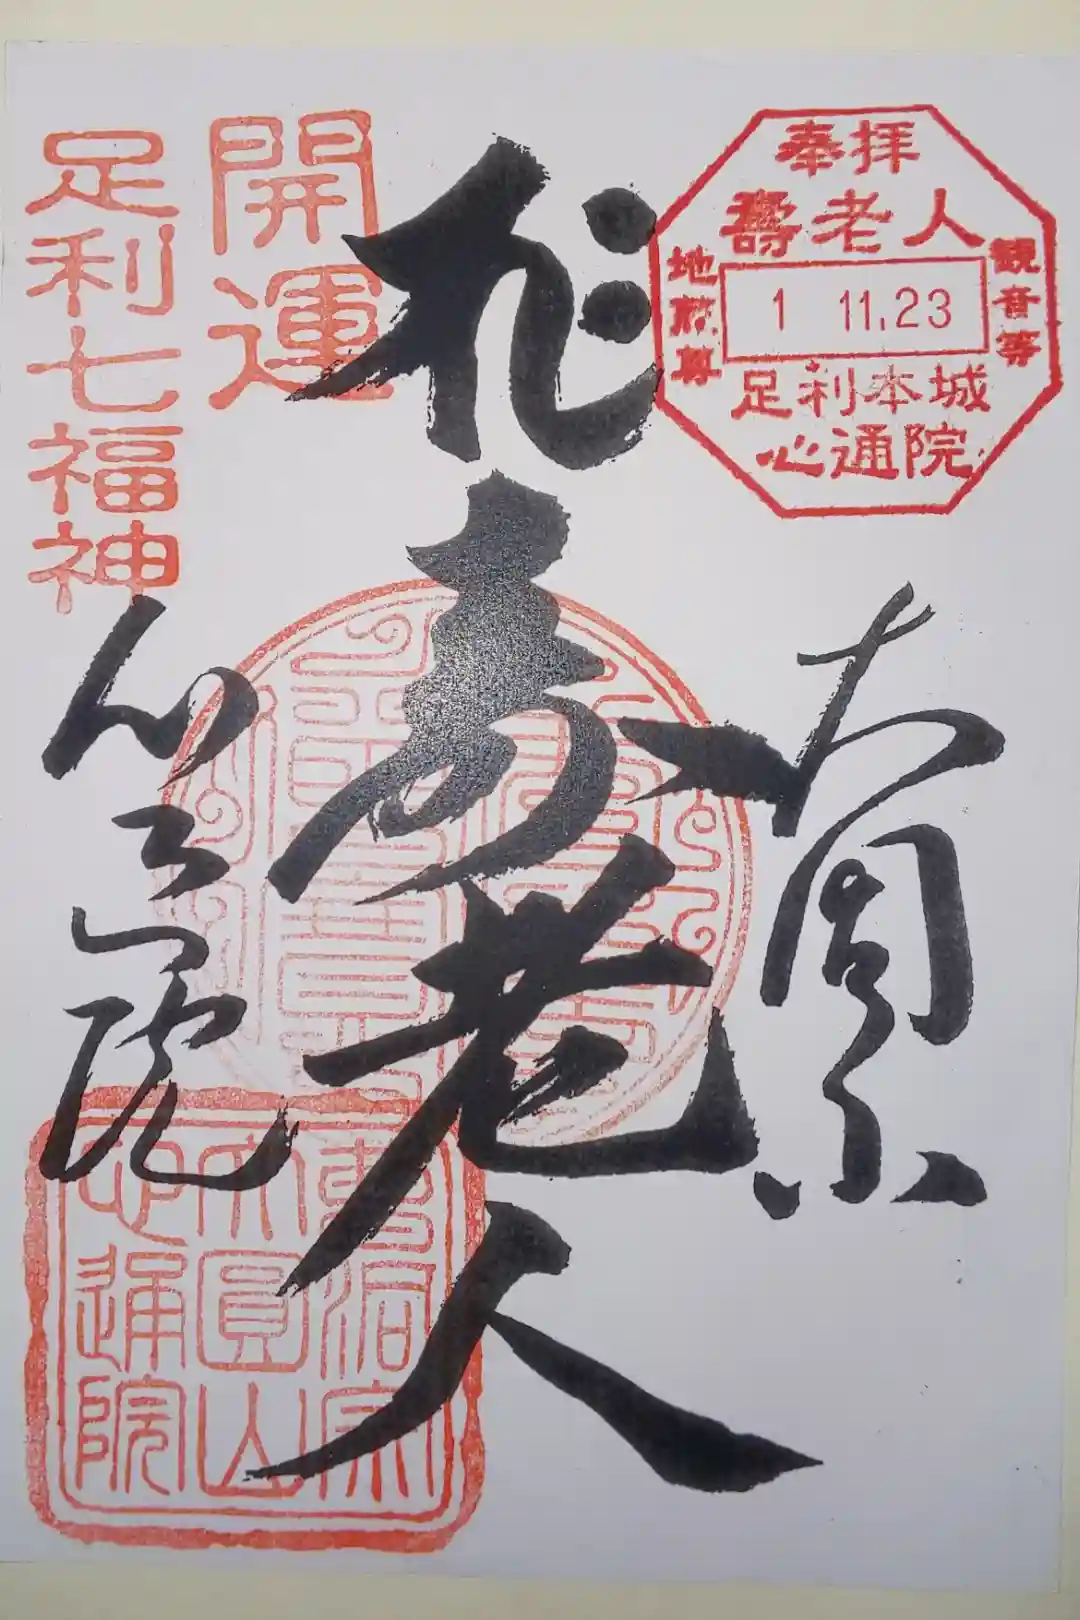 奉拝
壽老人
観音等
1 11.23
地蔵尊
足利本城
心通院
大圓山
寿老人
開運
足利七福神
心通院
曹洞宗
大圓山
心通院